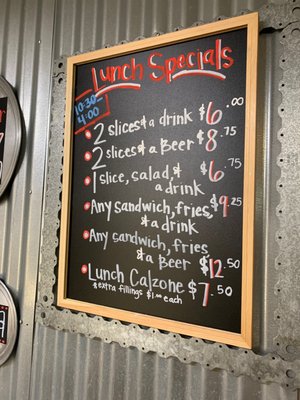 Lunch Specials
10:30-
4:00
2 slices & a drink $6.00
2 slices & a Beer $8.75
1 slice, salad, &
a drink $6.75
Any sandwich, fries,
& a drink $9.25
Any sandwich, fries
& a Beer $12.50
Lunch Calzone $7.50
*extra fillings $1.00 each